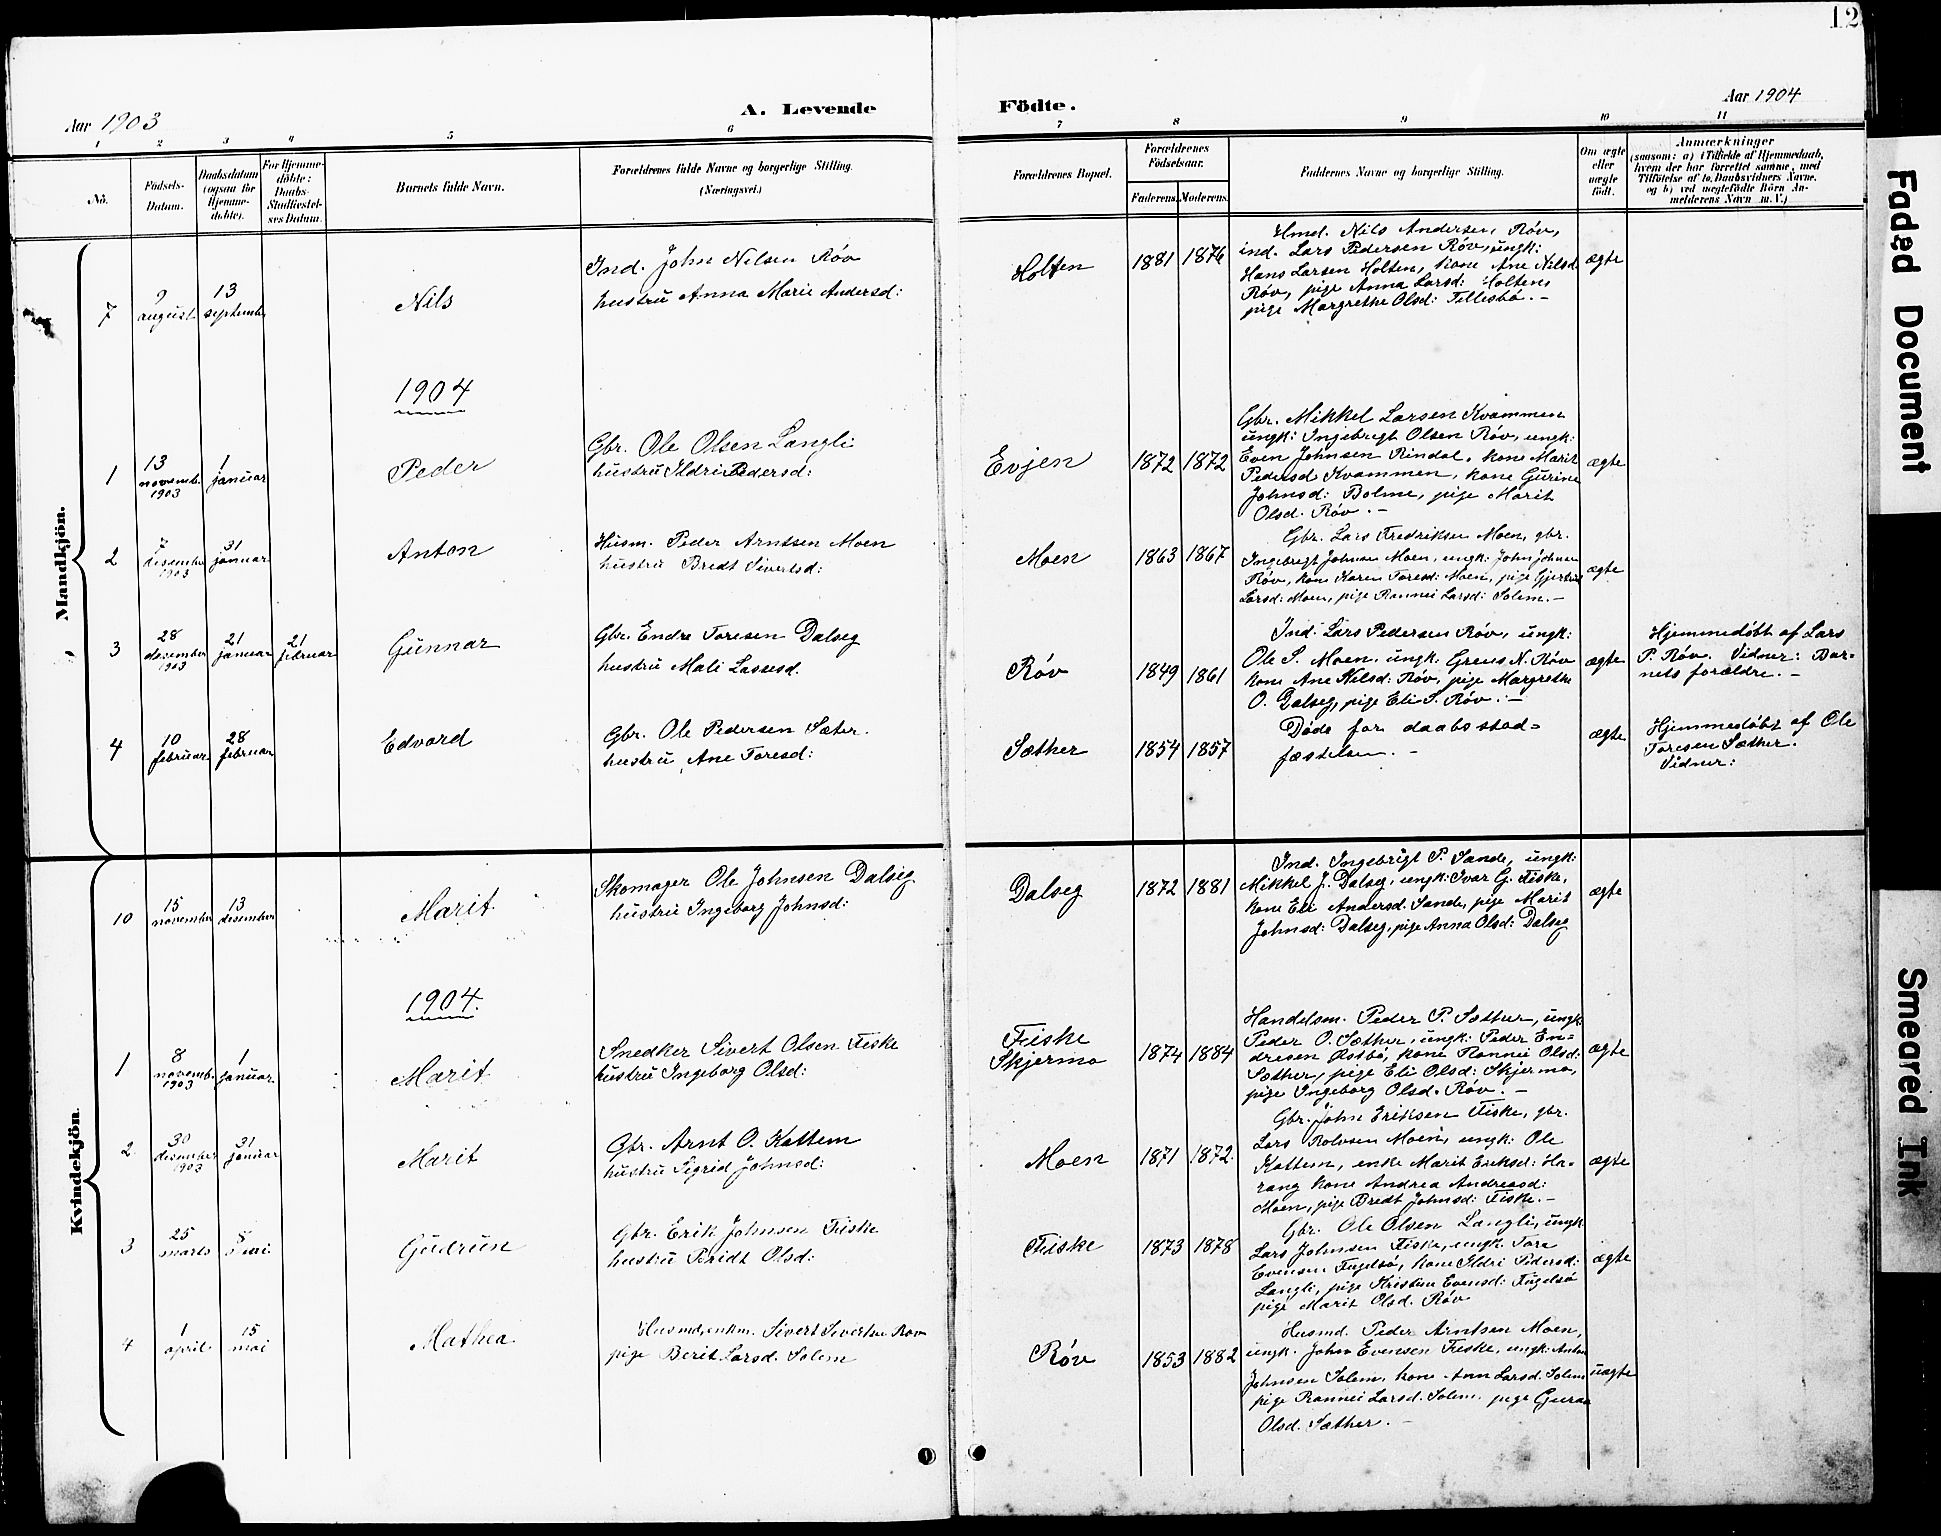 12
Aar 1903
A. Levende
Födte.
Aar 1904
1 2 3 4 5 6 7 8 9 10 11
No.
Födsels-
Datum.
Daabsdatum
(ogsaa for
Hjemme-
döbte).
For Hjemme-
döbte:
Daabs-
Stadfæstel-
ses Datum.
Barnets fulde Navn.
Forældrenes fulde Navne og borgerlige Stilling.
(Næringsvei.)
Forældrenes Bopæl.
Forældrenes
Födselsaar.
Faderens. Moderens.
Faddernes Navne og borgerlige Stilling.
Om ægte
eller
uægte
födt.
Anmærkninger
(saasom: a) i Tilfælde af Hjemmedaab,
hvem der har forrettet samme, med
Tilföielse af to Daabsvidners Navne,
og b) ved uægtefödte Börn An-
melderens Navn m. V.)
Mandkjön.
7
9
august
13
septemb.
Nils
Ind. John Nilsen Röv
hustru Anna Marie Andersd:
Holten
1881 1876
Hmd. Nils Andersen Röv,
ind. Lars Pedersen Röv, ungk:
Hans Larsen Holten, kone Ane Nilsd.
Röv, pige Anna Larsd: Holten,
pige Margrethe Olsd: Tellesbö. -
ægte
1904
1
13
novemb.
1903
1
januar
Peder
Gbr. Ole Olsen Langli
hustru Ildri Pedersd:
Evjen
1872 1872
Gbr. Mikkel Larsen Kvammen
ungk: Ingebrigt Olsen Röv, ungk:
Even Johnsen Rindal, kone Marit
Pedersd Kvammen, kone Gurine
Johnsd: Bolme, pige Marit
Olsd. Röv. -
ægte
2
7
desember
1903
31
januar
Anton
Husm. Peder Arntsen Moen
hustru Bredt Sivertsd:
Moen
1863 1867
Gbr. Lars Fredriksen Moen, gbr.
Ingebrigt Johnsen Moen, ungk: John Johnsen
Röv, kone Karen Toresd: Moen, pige Gjertrud
Larsd: Moen, pige Rannei Larsd: Solem. -
ægte
3
28
desember
1903
21
januar
21
februar
Gunnar
Gbr. Endre Toresen Dalseg
hustru Mali Lassesd.
Röv
1849 1861
Ind. Lars Pedersen Röv, ungk:
Ole S. Moen, ungk. Grens N. Röv
kone Ane Nilsd: Röv, pige Margrethe
O. Dalseg, pige Eli S. Röv. -
ægte
Hjemmedöbt af Lars
P. Röv. Vidner: Bar-
nets forældre. -
4
10
februar
28
februar
Edvard
Gbr. Ole Pedersen Sæter.
hustru Ane Toresd:
Sæther
1854 1857
Döde for daabsstad-
fæstelsen. -
ægte
Hjemmedöbt af Ole
Toresen Sæther.
Vidner:
Kvindekjön.
10
15
november
13
desember
Marit
Skomager Ole Johnsen Dalseg
hustru Ingeborg Johnsd:
Dalseg
1872 1881
Ind. Ingebrigt P. Sande, ungk:
Mikkel J. Dalseg, ungk: Ivar G. Fiske,
kone Eli Andersd. Sande, pige Marit
Johnsd: Dalseg, pige Anna Olsd: Dalseg
ægte
1904.
1
8
novemb.
1903
1
januar
Marit
Snedker Sivert Olsen Fiske
hustru Ingeborg Olsd:
Fiske
Skjermo
1874 1884
Handelsm. Peder P. Sæther, ungk
Peder O. Sæther, ungk: Peder En-
dresen Östbö, kone Rannei Olsd.
Sæther, pige Eli Olsd: Skjermo,
pige Ingeborg Olsd. Röv. -
ægte
2
30
desember
1903
31
januar
Marit
Gbr. Arnt O. Kattem
hustru Sigrid Johnsd:
Moen
1871 1872.
Gbr. John Eriksen Fiske, gbr.
Lars Rolvsen Moen, ungk: Ole
Kattem, enke Marit Eriksd: Ha-
rang kone Andrea Andreasd:
Moen, pige Bredt Johnsd: Fiske. -
ægte
3
25
marts
Gudrun
Gbr. Erik Johnsen Fiske
hustru Bridt Olsd:
Fiske
1873 1878
Gbr. Ole Olsen Langli, ungk
Lars Johnsen Fiske, ungk. Tore
Evensen Fugelsö, kone Ildri Pedersd:
Langli, pige Kristine Evensd: Fugelsö
pige Marit Olsd. Röv
ægte
4
1
april
15
mai
Mathea
Husmd, enkm. Sivert Sivertsen Röv
pige Berit Larsd. Solem
Röv
1853 1882
Husmd. Peder Arntsen Moen,
ungk. John Evensen Fiske, ungk: Anton
Johnsen Solem, kone Ann Larsd. Solem
pige Rannei Larsd. Solem. pige Guraa
Olsd. Sæther. -
uægte
Faded Document
Smeared Ink